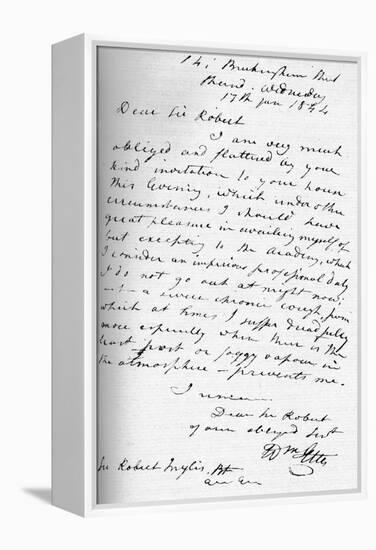 14 Buckingham Street
Strand. Wednesday
17th Jan 1844
Dear Sir Robert
I am very much
obliged and flattered by your
kind invitation to your house
this Evening, which under other
circumstances I should have
great pleasure in availing myself of
but excepting to the Academy, which
I consider an imperious professional duty
I do not go out at night now;
a severe chronic cough, from
which at times I suffer dreadfully
more especially when there is the
least frost or foggy vapour in
the atmosphere — prevents me.
I remain
Dear Sir Robert
your obliged Servt
Wm Etty
Sir Robert Inglis. Bt